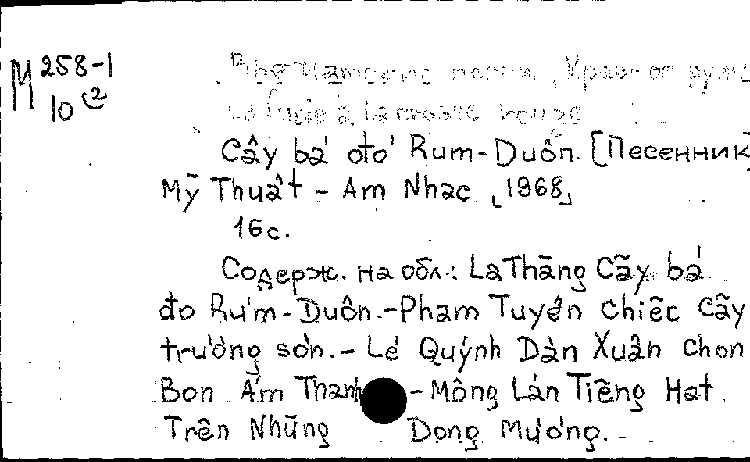 M 258-1
10 2
Cây bá đỏ Rum-Duôn. [Песенник]
Mỹ Thuât - Am Nhac [1968]
16с.
Содерж. на обл.: La Thăng Cãy bá
đo Rum-Duôn.-Pham Tuyên Chiêc Cãy
trường sơn.-Lê Quýnh Dàn Xuân Chon
Bon Ấm Thanh -Mông Lán Tiêng Hat
Trên Những Dong Mương.-